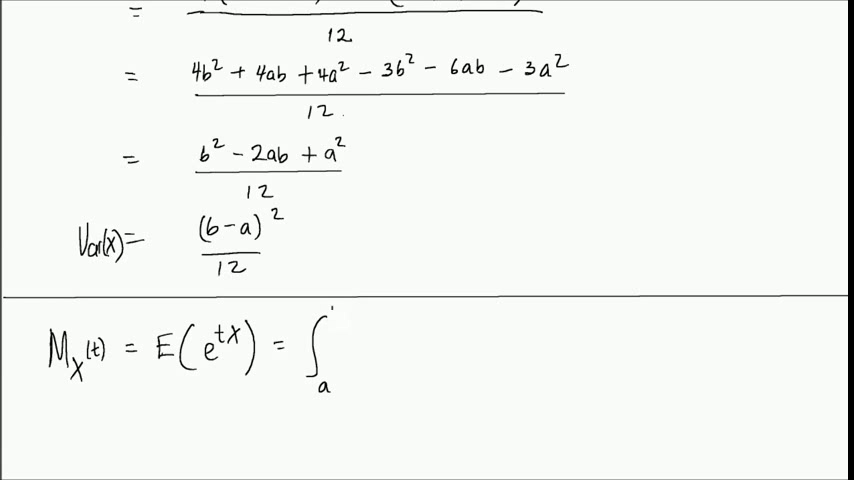 =
12
= 4b² + 4ab + 4a² - 3b² - 6ab - 3a²
12
= b² - 2ab + a²
12
Var(X) = (b-a)²
12
M_X(t) = E(e^{tX}) = ∫_a